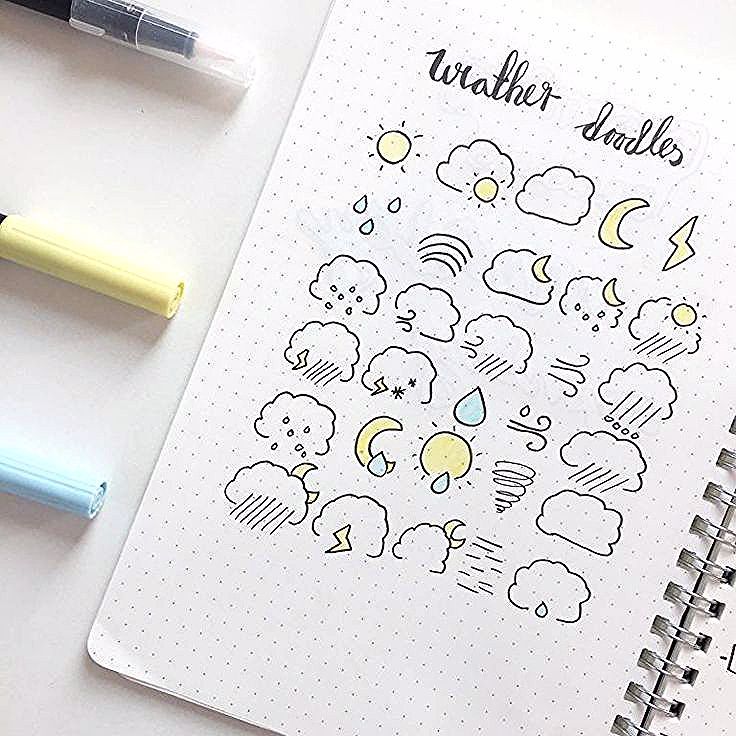 weather doodles